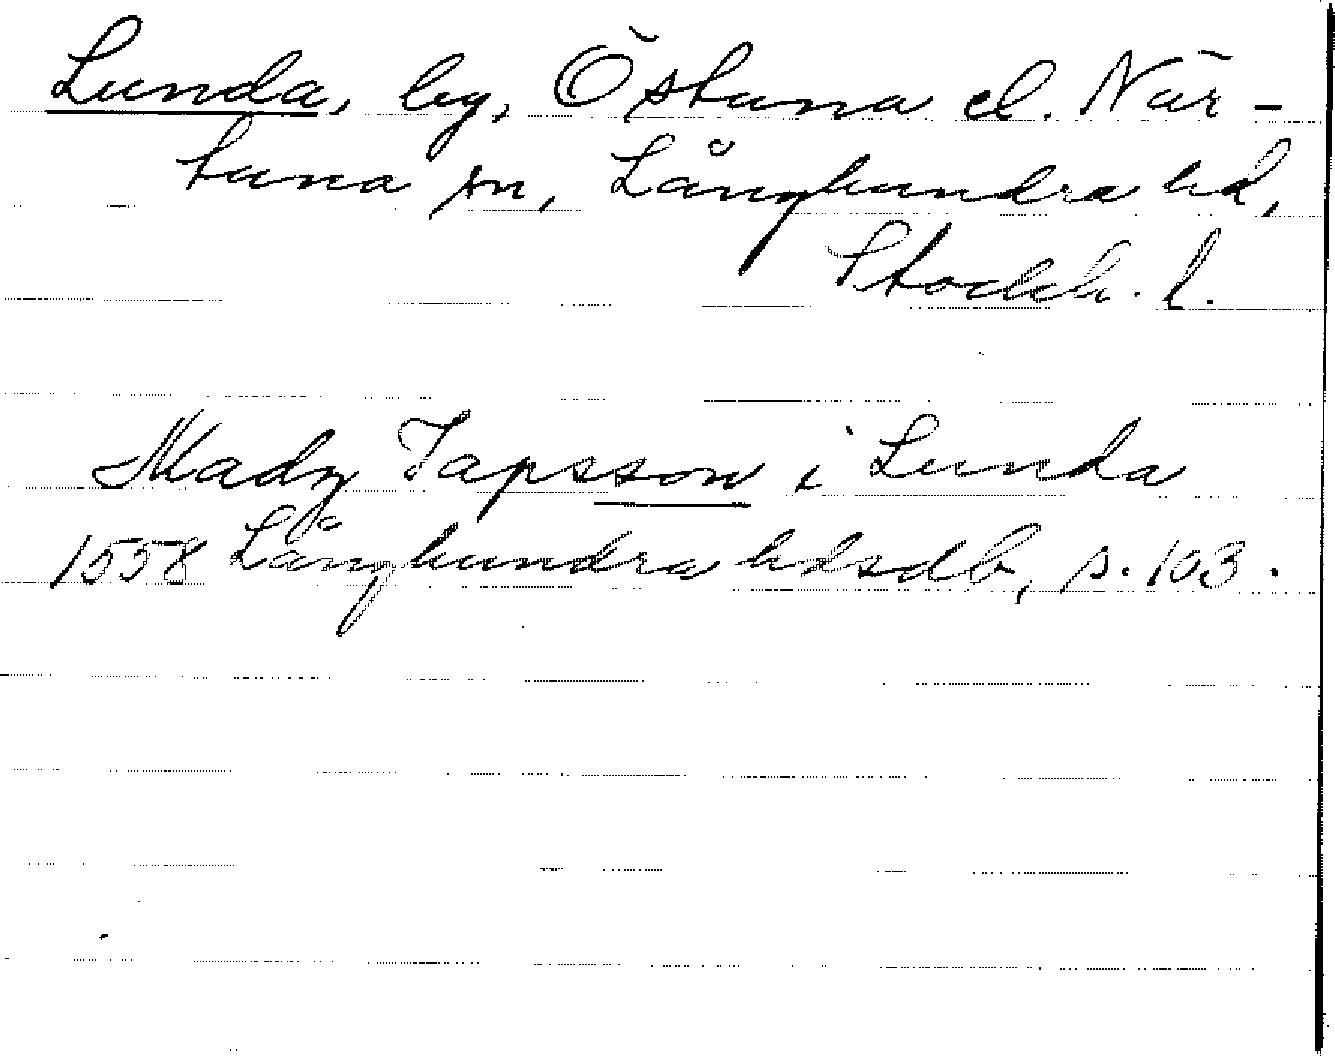 Lunda, by, Östuna el. När-
tuna sn, Långhundra hd,
Stockh. l.
Madz Japsson i Lunda
1558 Långhundra hdsdb, s. 103.